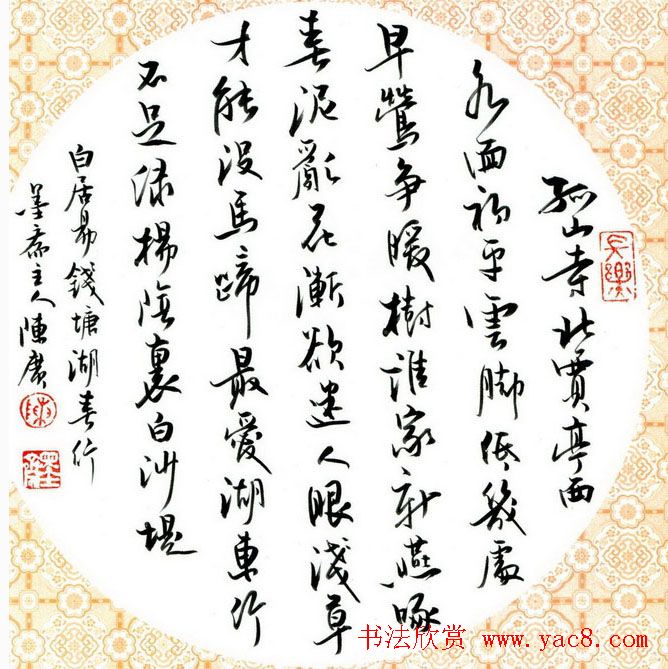 孤山寺北賈亭西
水面初平雲脚低幾處
早鶯争暖樹誰家新燕啄
春泥亂花漸欲迷人眼淺草
才能没馬蹄最愛湖東行
不足綠楊陰裏白沙堤
白居易錢塘湖春行
墨斋主人陳廣
书法欣赏 www.yac8.com